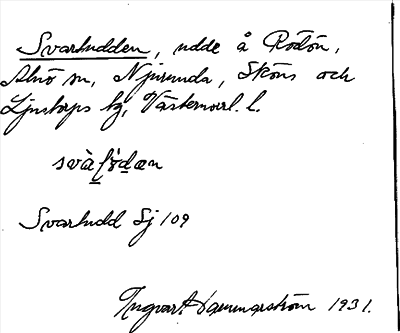 Svarludden, udde å Rödön,
Alnö sn, Njurunda, Sköns och
Ljustorps tg, Västernorrl. l.
Svarludd Sj 109
Ingvar Hammarström 1931.